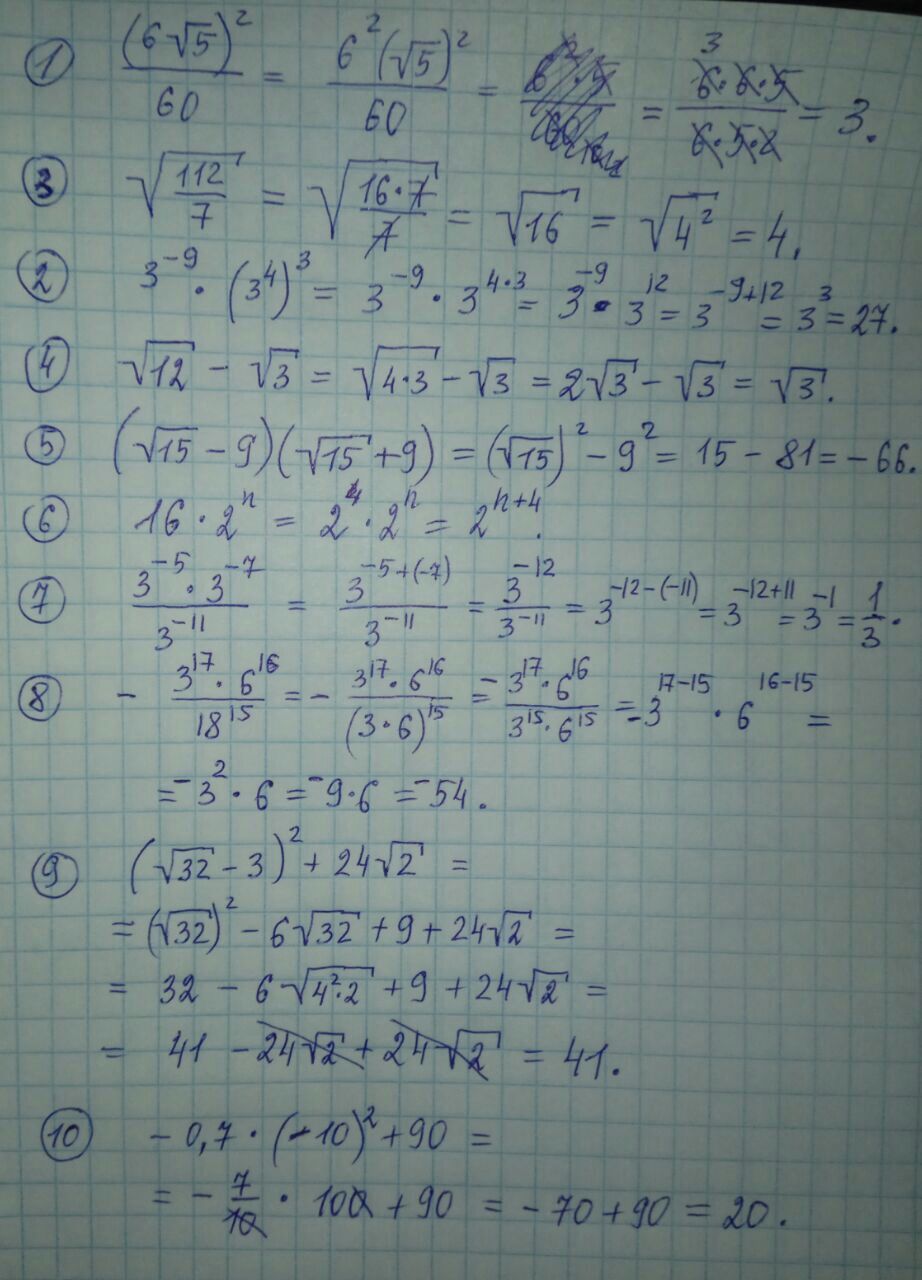 ① (6√5)²/60 = 6²(√5)²/60 = = 6·6·5/6·5·2 = 3.
3
③ √(112/7) = √(16·7/7) = √16 = √4² = 4.
② 3⁻⁹ · (3⁴)³ = 3⁻⁹ · 3⁴·³ = 3⁻⁹ · 3¹² = 3⁻⁹⁺¹² = 3³ = 27.
④ √12 − √3 = √(4·3) − √3 = 2√3 − √3 = √3.
⑤ (√15 − 9)(√15 + 9) = (√15)² − 9² = 15 − 81 = −66.
⑥ 16 · 2ⁿ = 2⁴ · 2ⁿ = 2ⁿ⁺⁴.
⑦ 3⁻⁵ · 3⁻⁷/3⁻¹¹ = 3⁻⁵⁺⁽⁻⁷⁾/3⁻¹¹ = 3⁻¹²/3⁻¹¹ = 3⁻¹²⁻⁽⁻¹¹⁾ = 3⁻¹²⁺¹¹ = 3⁻¹ = 1/3.
⑧ − 3¹⁷ · 6¹⁶/18¹⁵ = − 3¹⁷ · 6¹⁶/(3·6)¹⁵ = − 3¹⁷ · 6¹⁶/3¹⁵ · 6¹⁵ = −3¹⁷⁻¹⁵ · 6¹⁶⁻¹⁵ =
= −3² · 6 = −9·6 = −54.
⑨ (√32 − 3)² + 24√2 =
= (√32)² − 6√32 + 9 + 24√2 =
= 32 − 6√(4²·2) + 9 + 24√2 =
= 41 − 24√2 + 24√2 = 41.
⑩ − 0,7 · (−10)² + 90 =
= − 7/10 · 100 + 90 = −70 + 90 = 20.